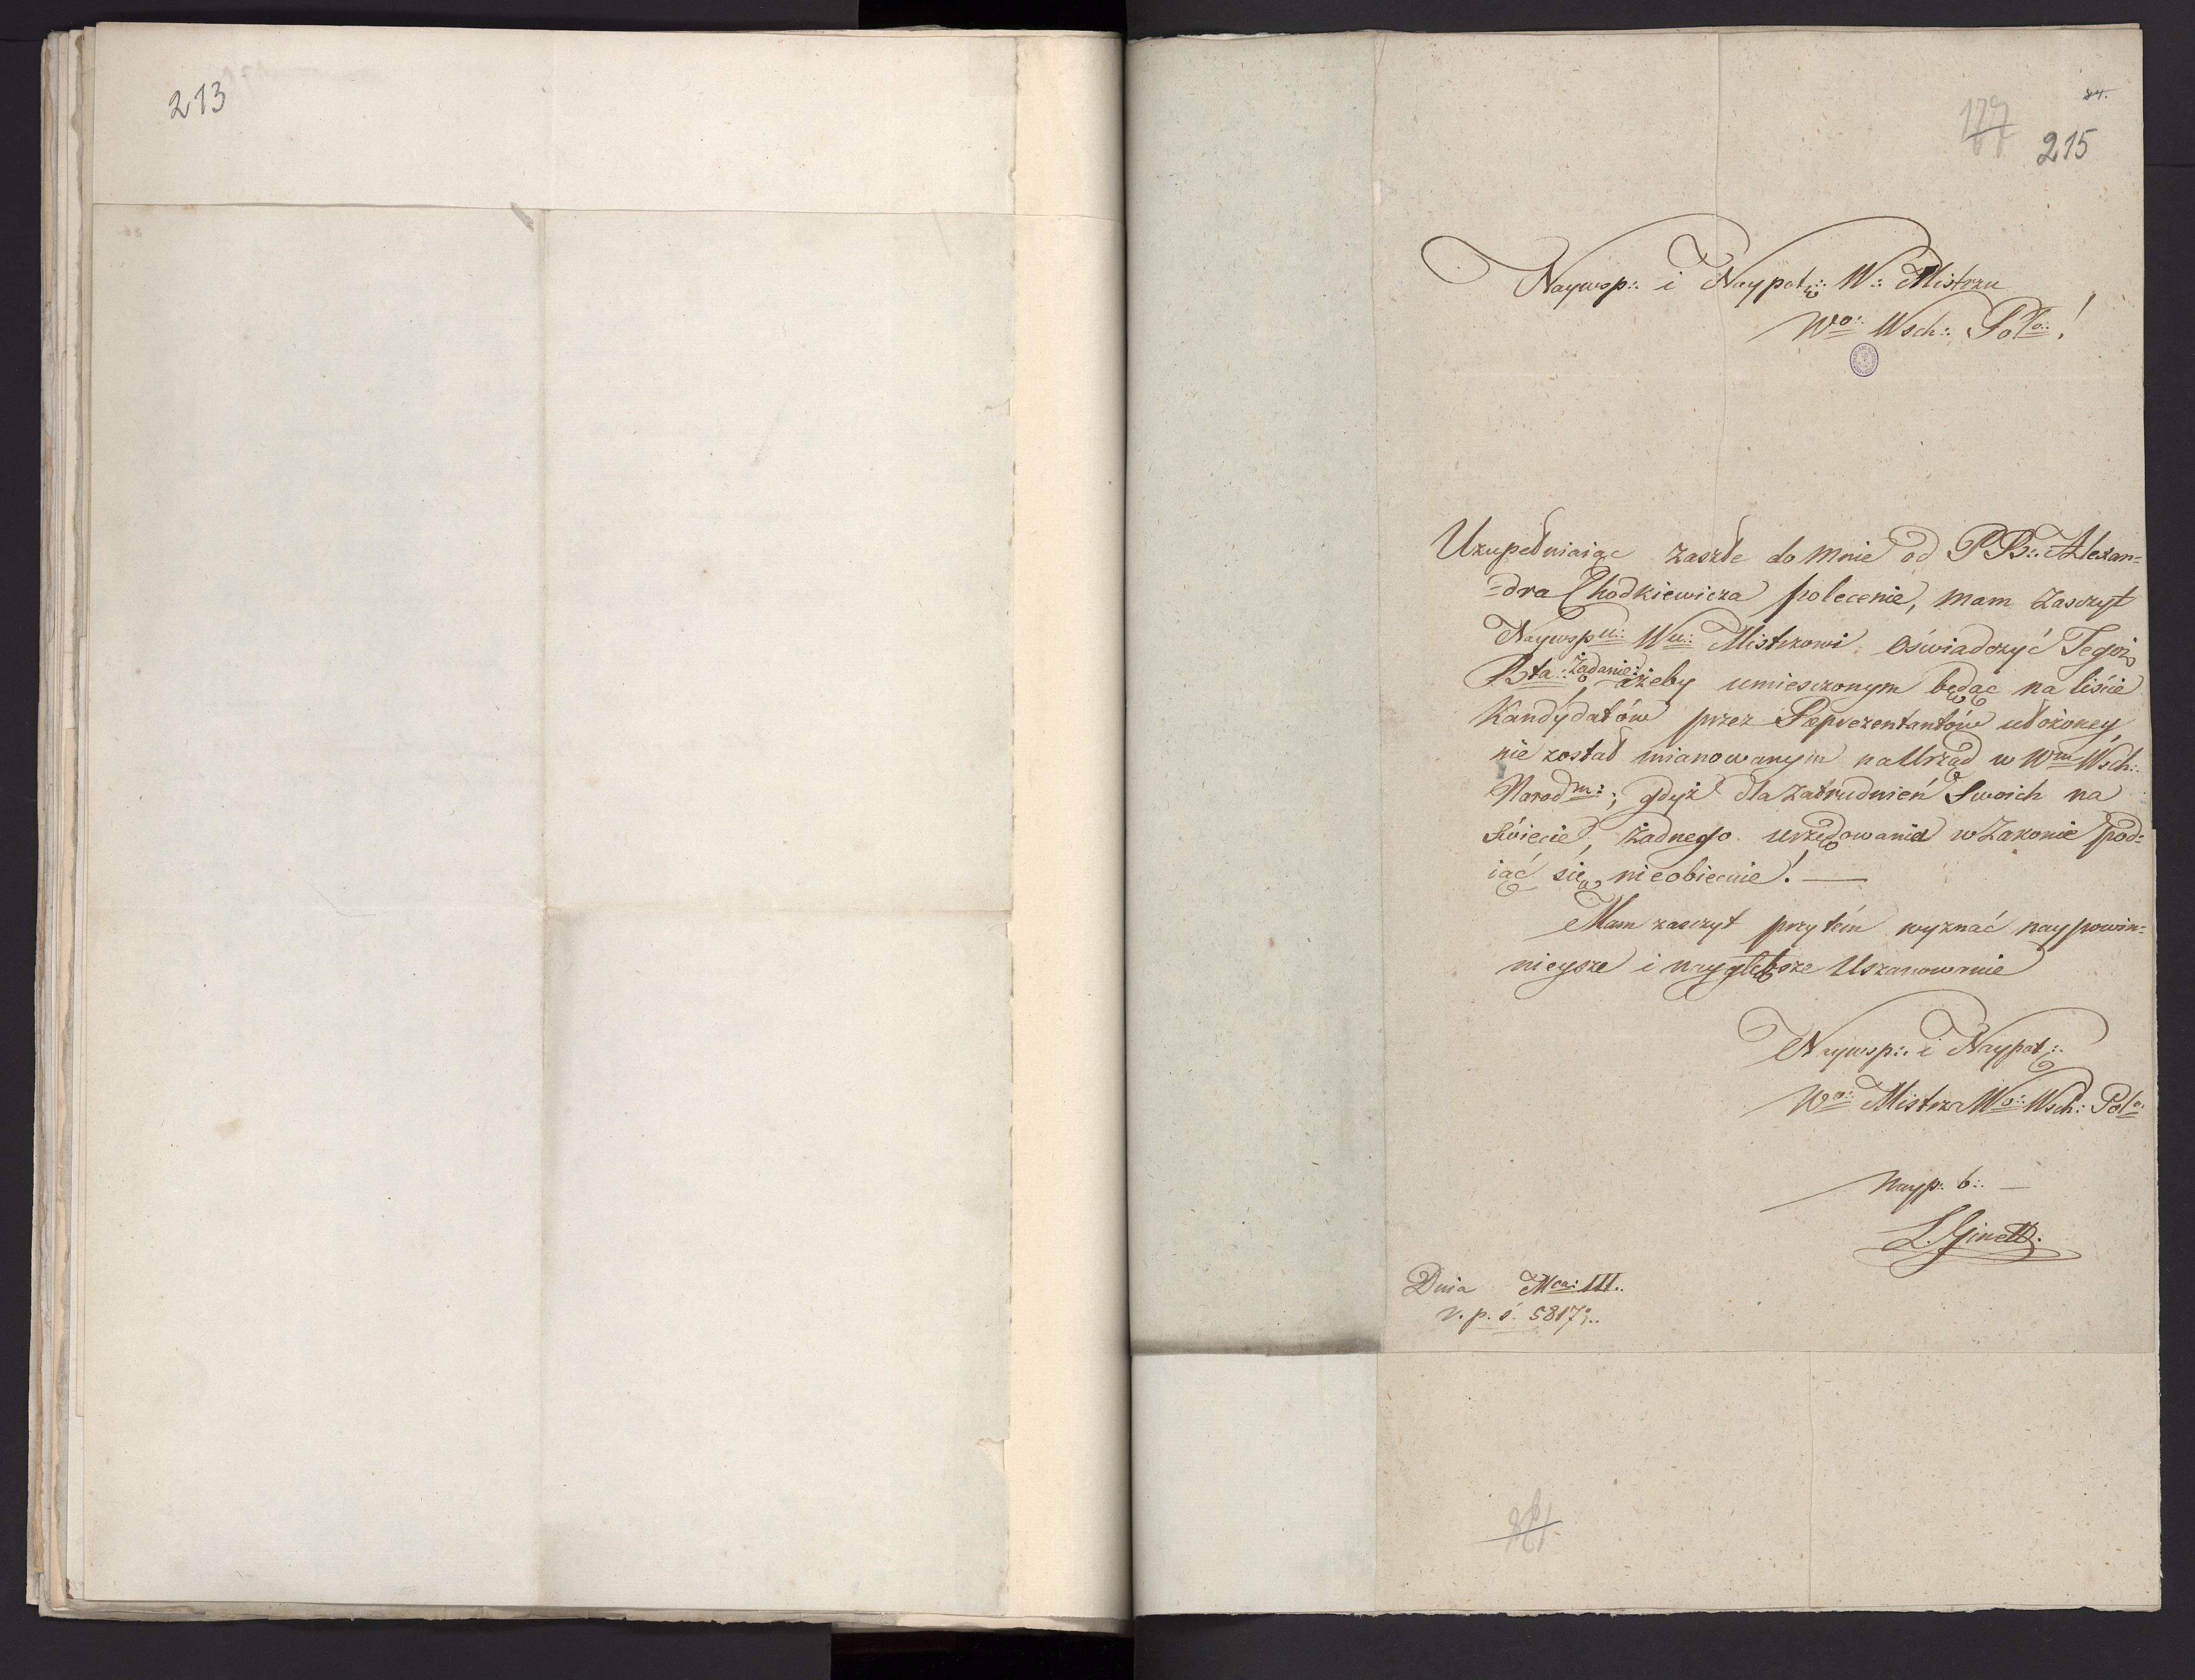 213
84.
177
215
Naywsp:. i Naypotę:. W:. Mistrzu
Wo:. Wsch:. Polo:. !
Uzupełniaiąc zaszłe do mnie od PB:. Alexan=
=dra Chodkiewicza polecenie, mam zasczyt
Naywspu:. Wu:. Mistrzowi oświadczyć Tegoż
Bta:. Żądanie:, ażeby umiesczonym będąc na liście
Kandydatów przez Reprezentantów ułożoney,
nie został mianowanym na Urząd w Wm Wsch:.
Narodm:.; gdyż dla zatrudnień Swoich na
Świecie, żadnego urzędowania w Zakonie pod=
iąć się nieobiecuie! —
Mam zasczyt przytém wyznać naypowin=
nieysze i naygłębsze Uszanowanie
Naywsp:. i Naypotę:.
Wo:. Mistrza Wo:. Wsch:. Polo:.
Nayp:. b:. —
L. Ginett.
Dnia Mca: III..
r. p. ś. 5817:..